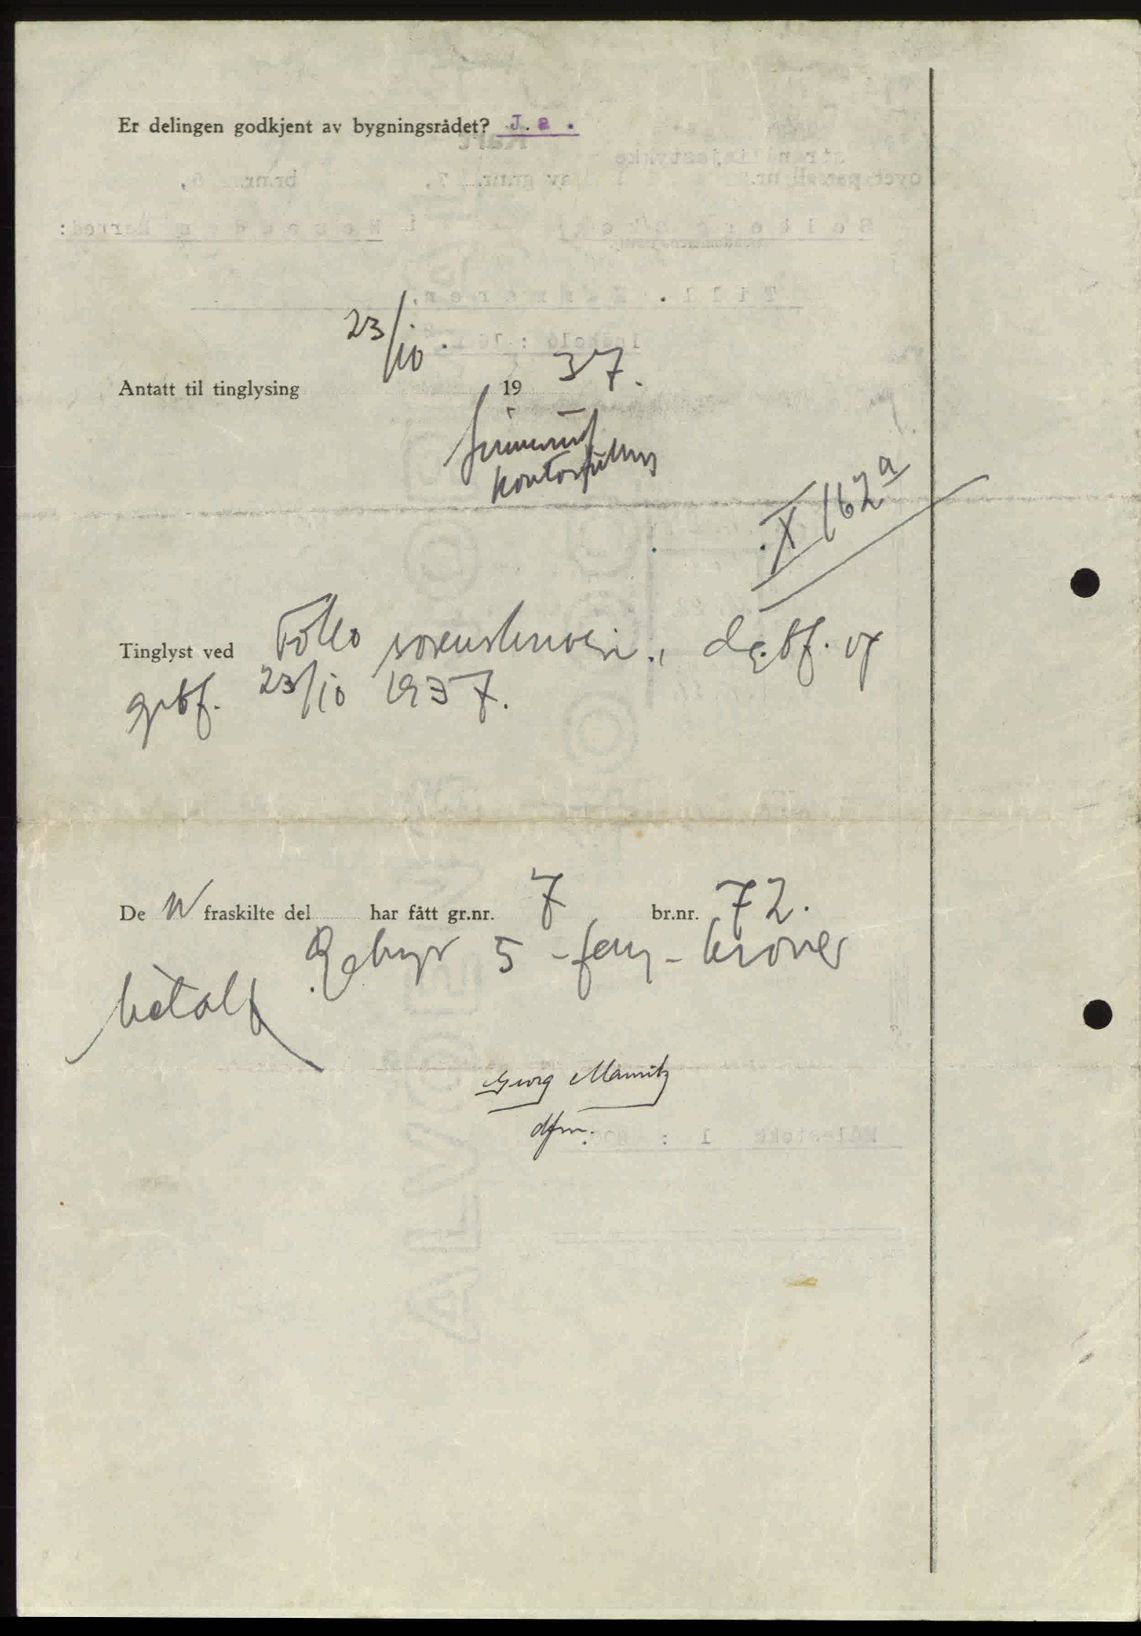 Er delingen godkjent av bygningsrådet? J.a .
23/10.
Antatt til tinglysing 19 37.
X 162a
Tinglyst ved Follo sorenskriveri., dgbf. og
grbf. 23/10 1937.
De N fraskilte del har fått gr.nr. 7 br.nr. 72.
Gebyr 5 - fem - kroner
betalt
Georg
dfm.